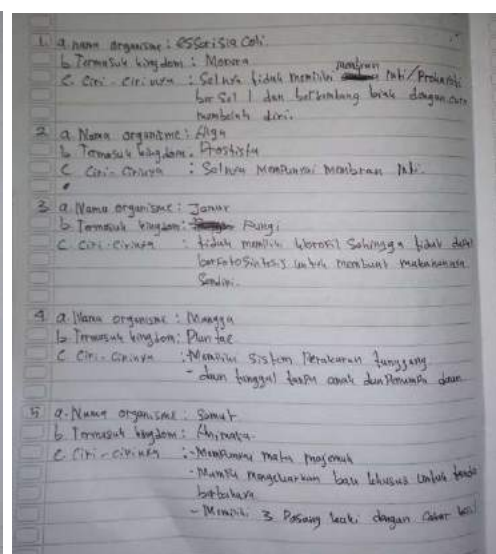 1. a. nama organisme : essorisia coli.
b. Termasuk kingdom : Monera
c. Ciri-cirinya : Selnya tidak memiliki membran inti/Prokariot
bersel 1 dan berkembang biak dengan cara
membelah diri.
2 a. Nama organisme : Alga
b. Termasuk kingdom : Prostista
c. Ciri-cirinya : Selnya mempunyai membran inti.
3 a. Nama organisme : Jamur
b. Termasuk kingdom : Fungi
c. Ciri-cirinya : tidak memiliki klorofil sehingga tidak dapat
berfotosintesis untuk membuat makanannya
sendiri.
4 a. Nama organisme : Mangga
b. Termasuk kingdom : Plantae
c. Ciri-cirinya : - Memiliki sistem Perakaran tunggang
- daun tunggal tanpa anak dan Penumpu daun
5 a. Nama organisme : Semut
b. Termasuk kingdom : Animalia
c. Ciri-cirinya : - Mempunyai mata majemuk
- Mampu mengeluarkan bau khusus untuk tanda
berbahaya
- Memiliki 3 Pasang kaki dengan cakar kecil